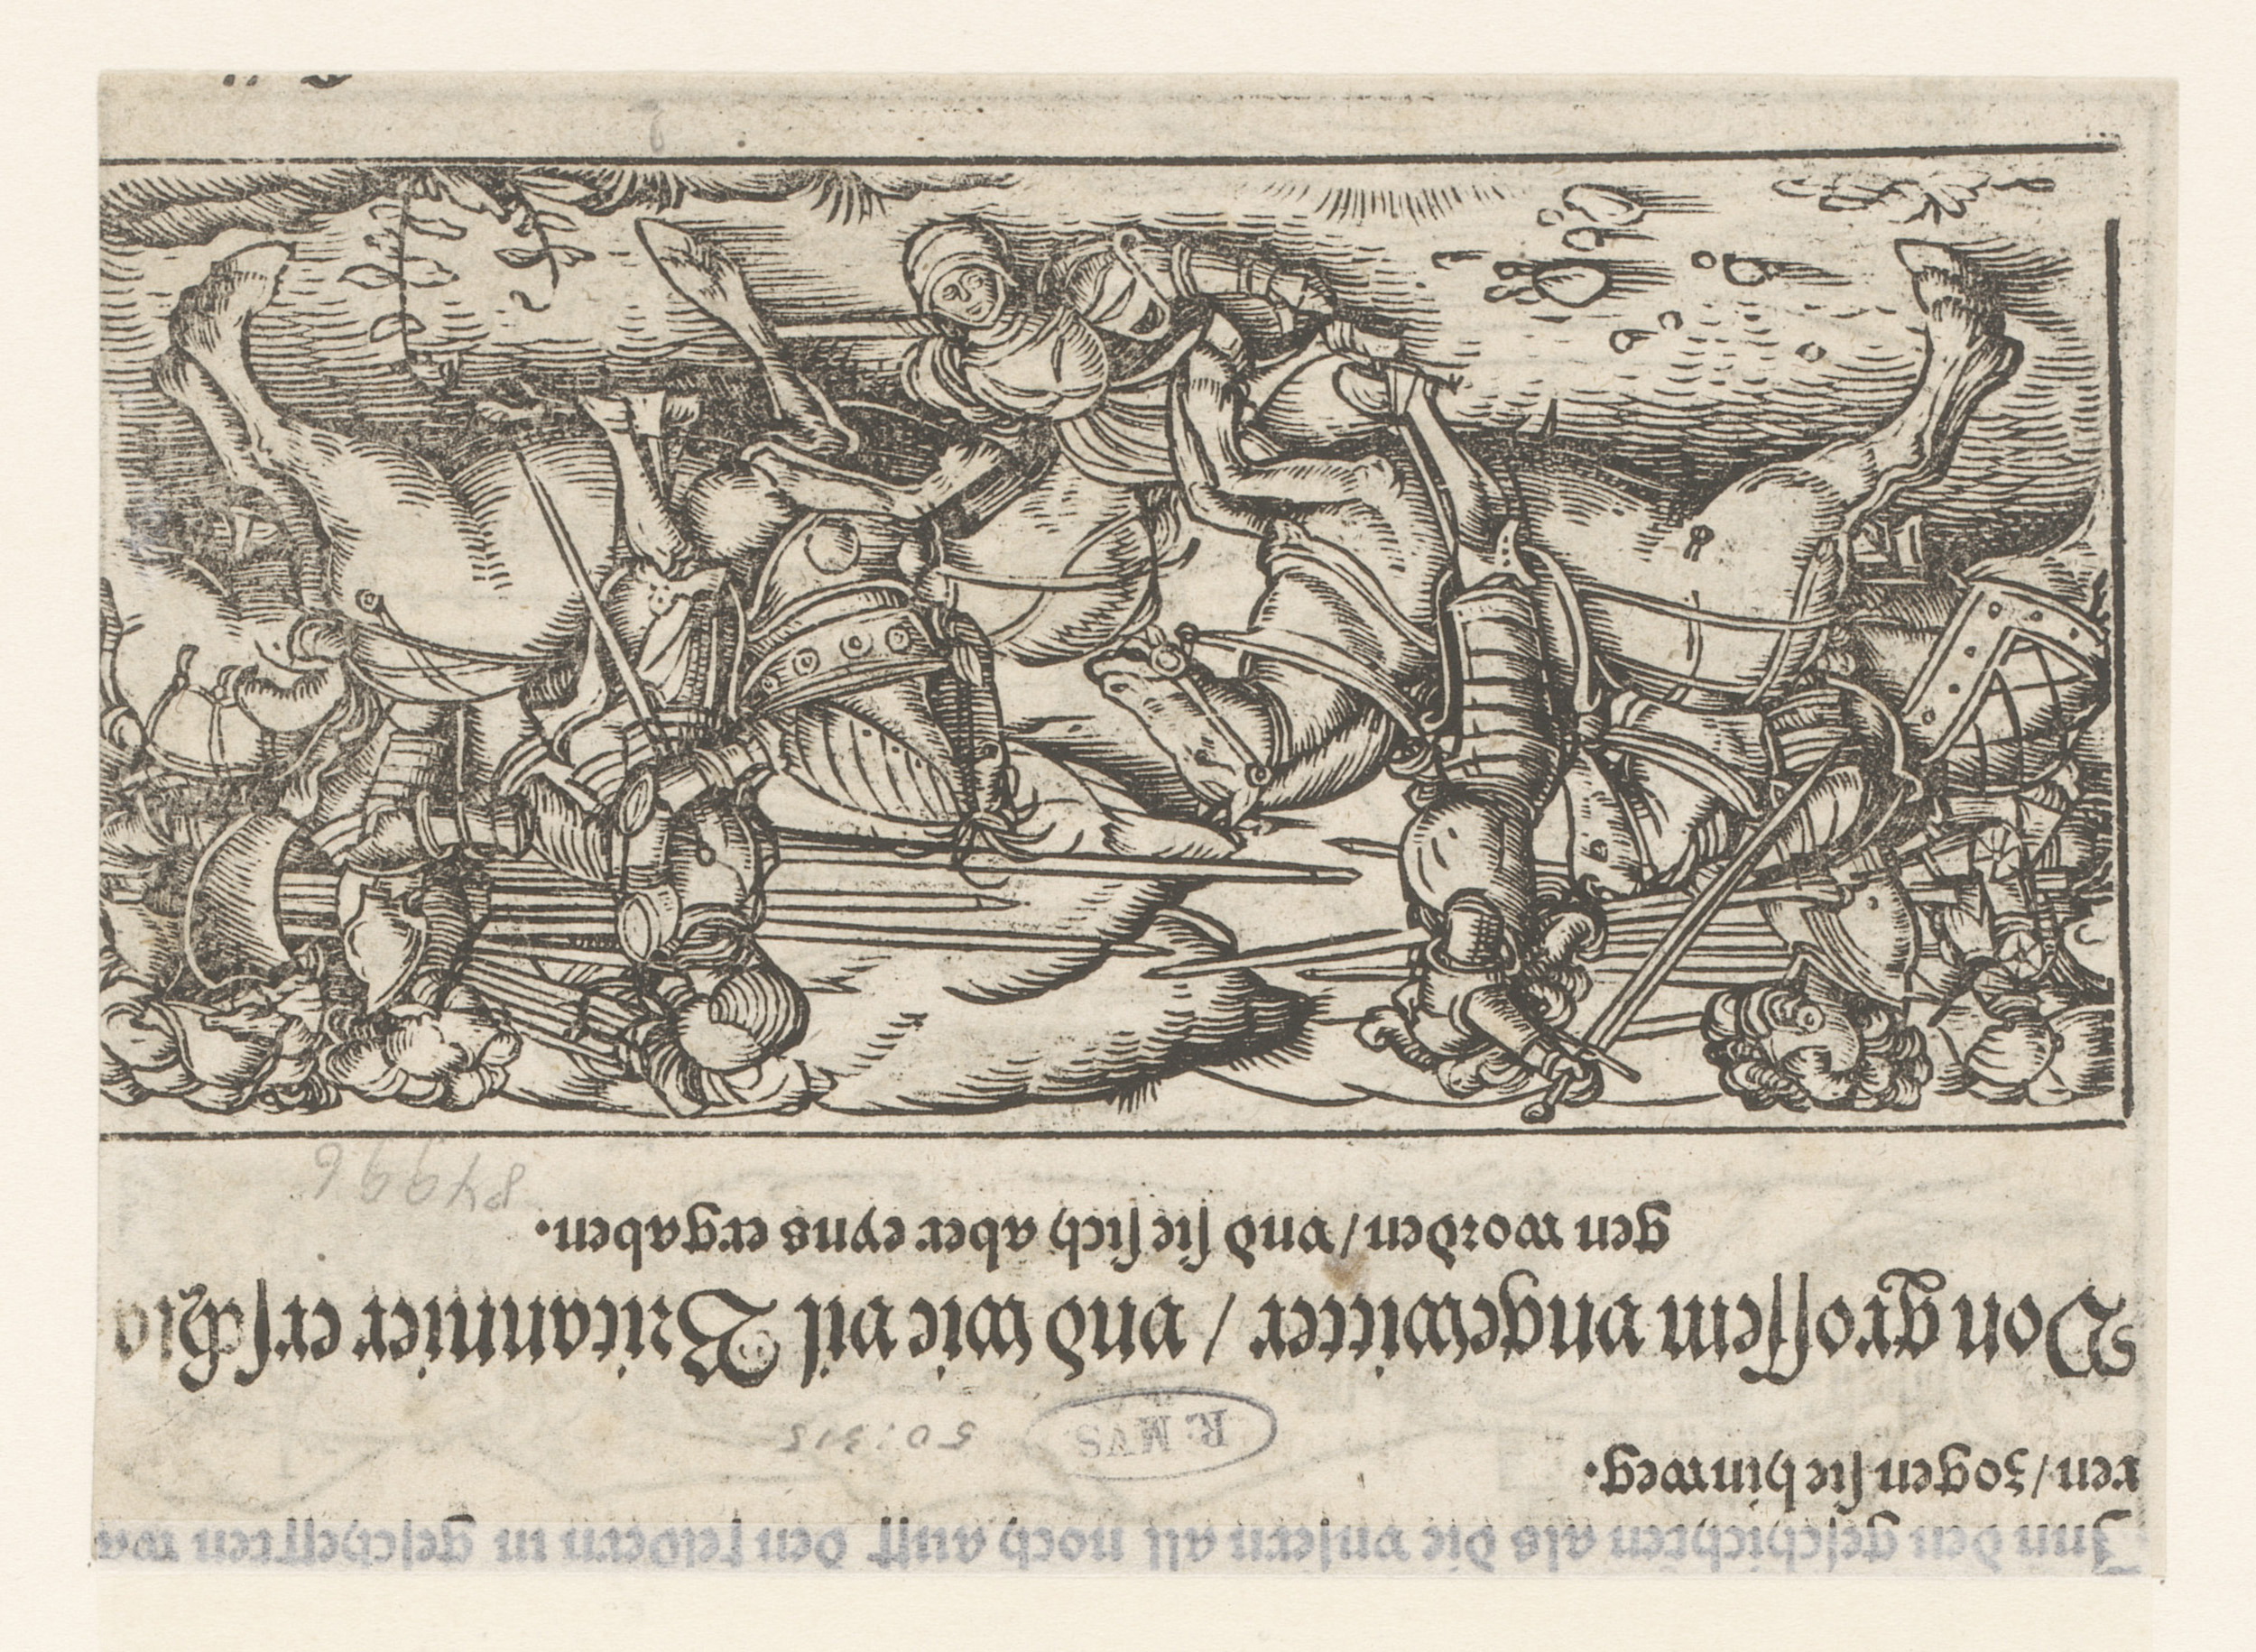 Inn den geſchichten als die vnſern all noch auff den feldern in geſchefften wa
ren / zogen ſie hinweg.
R. MVS
Von groſſem vngewitter / vnd wie vil Britannier erſchla
gen worden / vnd ſie ſich aber eyns ergaben.